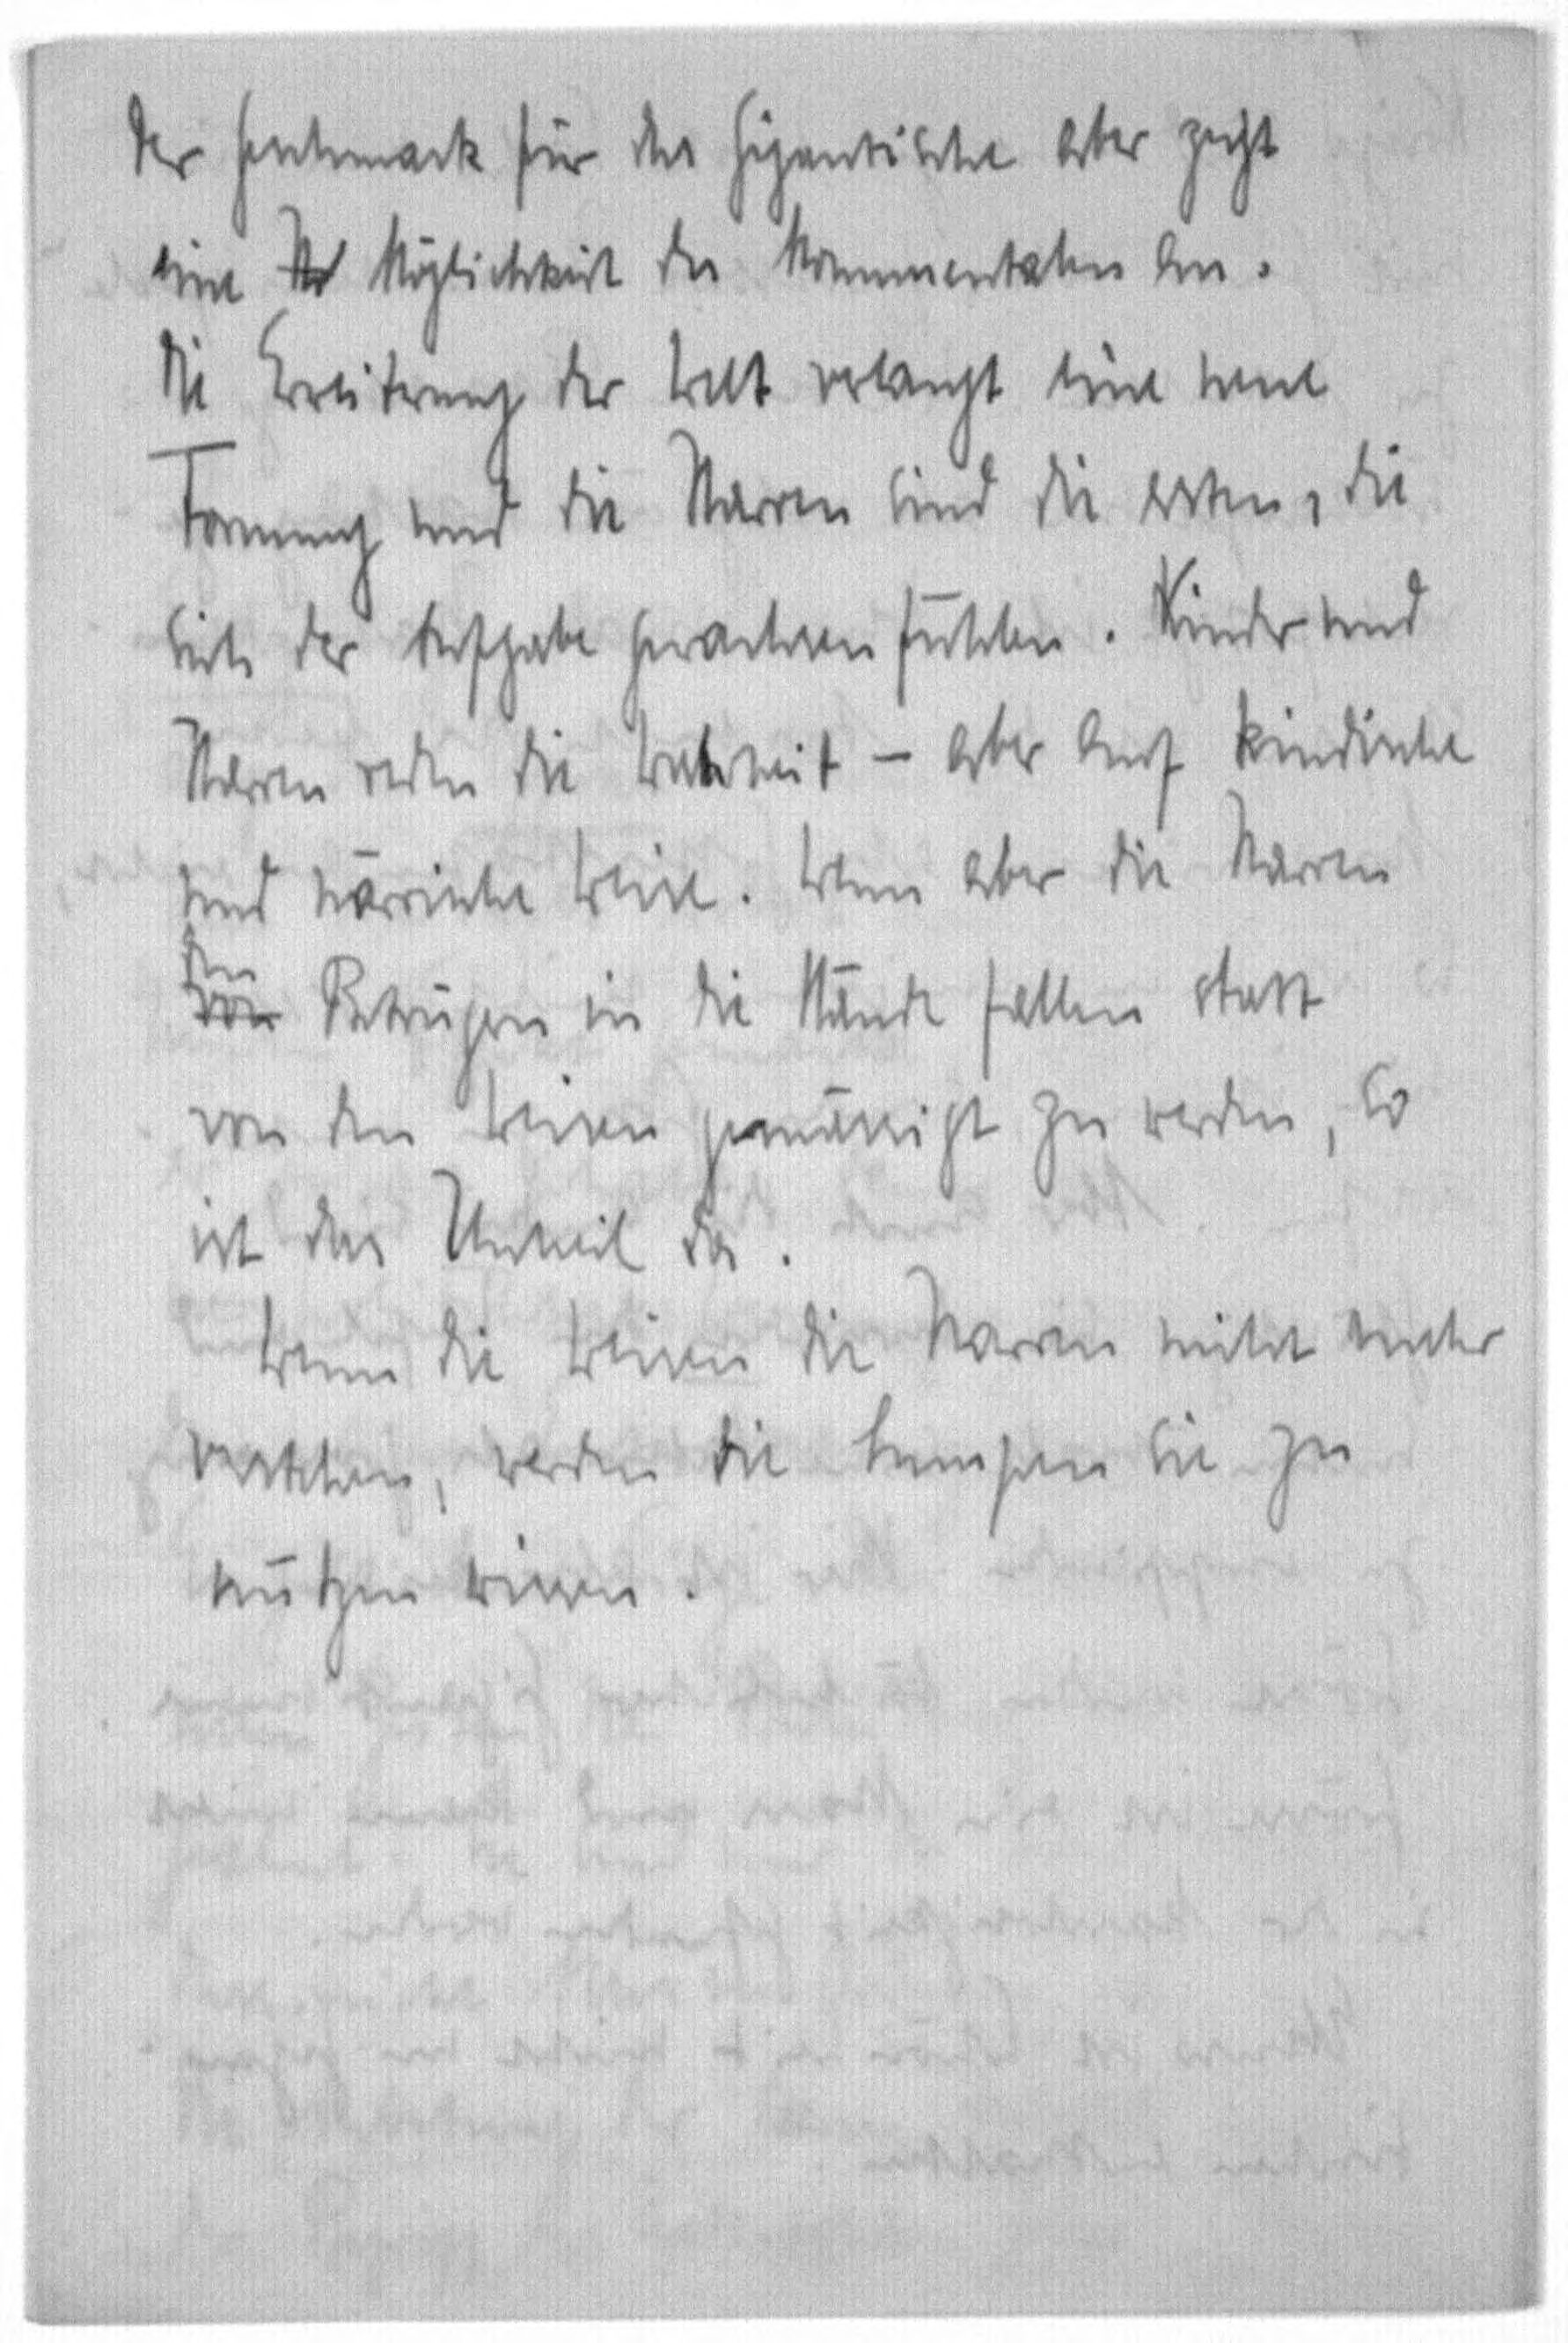 Der Geschmack für das Gigantische aber zeigt
eine Möglichkeit des Monumentalen an.
Die Erweiterung der Welt verlangt eine neue
Formung und die Narren sind die ersten, die
sich der Aufgabe gewachsen fühlen. Kinder und
Narren reden die Wahrheit – aber auf kindische
und närrische Weise. Wenn aber die Narren
den
von Betrügern in die Hände fallen statt
von den Weisen gemässigt zu werden, so
ist das Unheil da.
Wenn die Weisen die Narren nicht mehr
verstehen, werden die Lumpen sie zu
nützen wissen.